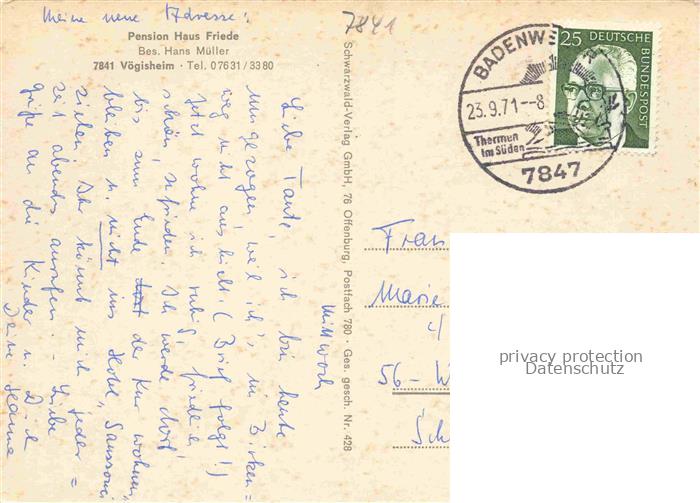 Meine neue Adresse:
Pension Haus Friede
Bes. Hans Müller
7841 Vögisheim · Tel. 07631/3380
7841
Mittwoch
Liebe Tante, ich bin heute
umgezogen, weil ich's im Birken=
weg nicht aushielt (Brief folgt!)
Jetzt wohne ich ruhig, friedlich
schön, zufrieden. Ich werde dort
bis zum Ende der Kur wohnen
bleiben u. nicht ins Hotel „Sanssouci"
ziehen. Ihr könnt mich jeder=
zeit abends anrufen. – Liebe
Grüße an die Kinder u. Dich
Deine Hanna
Schwarzwald-Verlag GmbH, 76 Offenburg, Postfach 780 · Ges. gesch. Nr. 428
BADENWE
23.9.71.--8
Thermen
im Süden
7847
25 DEUTSCHE
BUNDESPOST
Frau
Marie
c/
56 - W
Sch
privacy protection
Datenschutz